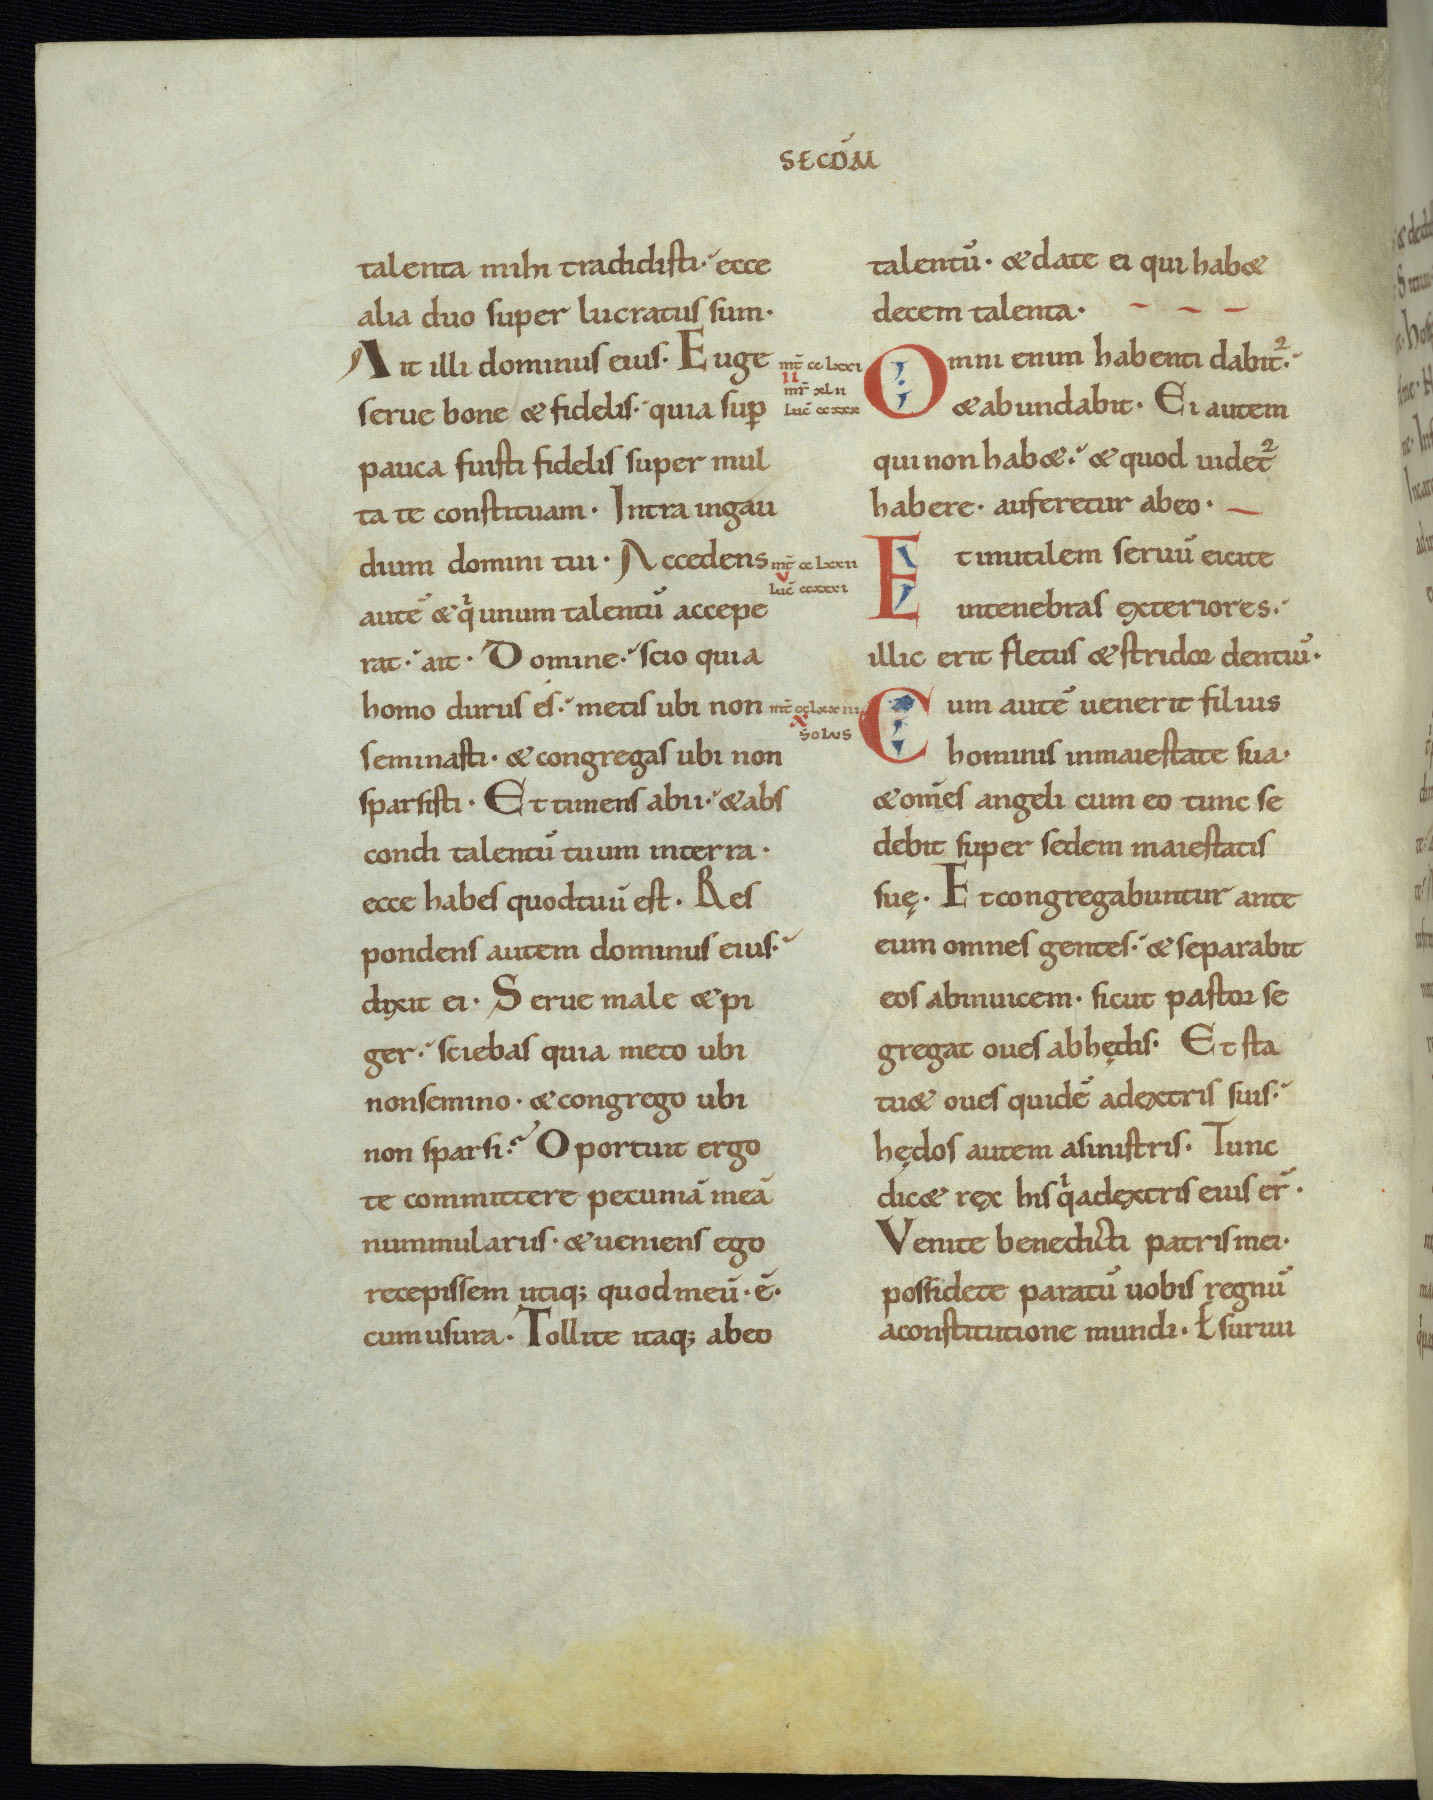 SECDM̄
talenta mihi tradidisti· ecce
alia duo super lucratus sum·
Ait illi dominus eius· Euge
serue bone & fidelis· quia sup̄
pauca fuisti fidelis super mul
ta te constituam· Intra ingau
dium domini tui· Accedens
autē & qi unum talentū accepe
rat· ait· Domine· scio quia
homo durus és· metis ubi non
seminasti· & congregas ubi non
sparsisti· Et timens abii· & abs
condi talentū tuum interra·
ecce habes quodtuū est· Res
pondens autem dominus eius·
dixit ei· Serue male & pi
ger· sciebas quia meto ubi
nonsemino· & congrego ubi
non sparsi? Oportuit ergo
te committere pecuniā meā
nummularus· & ueniens ego
recepissem utiq; quod meū·ē·
cumusura· Tollite itaq; abeo
mt̄ cclxxi
II
mr̄ xlii
luc̄ ccxxx
mt̄ cclxxii
V
luc̄ ccxxxi
mt̄ cclxxiii
X
solus
talentū· & date ei qui hab&
decem talenta·
Omni enim habenti dabit2·
& abundabit· Ei autem
qui non hab&· & quod uidet2
habere· auferetur abeo·
Et inutilem seruū eicite
intenebras exteriores·
illic erit fletus & stridor dentiū·
Cum autē uenerit filius
hominis inmaiestate sua·
& om̄es angeli cum eo tunc se
debit super sedem maiestatis
suę· Et congregabuntur ante
eum omnes gentes· & separabit
eos abinuicem· sicut pastor se
gregat oues abhędis· Et sta
tu& oues quidē adextris suis·
hędos autem asinistris· Tunc
dic& rex his qi adextris eius er̄·
Venite benedicti patris mei·
possidete paratū uobis regnū
aconstitutione mundi· Esuriui